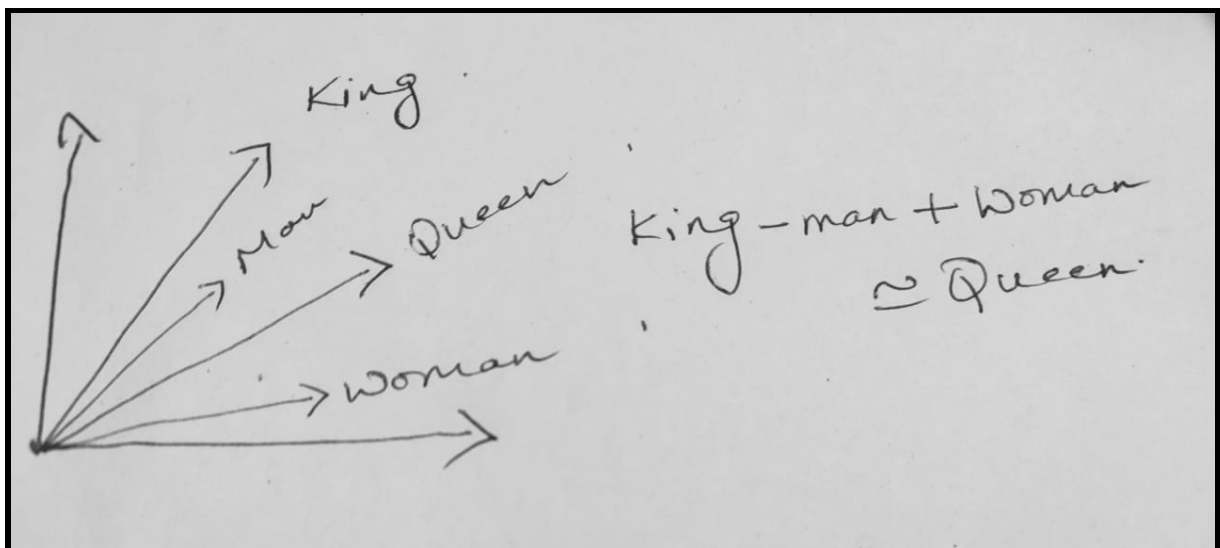 King
Man
Queen
Woman
King - man + Woman
≃ Queen.